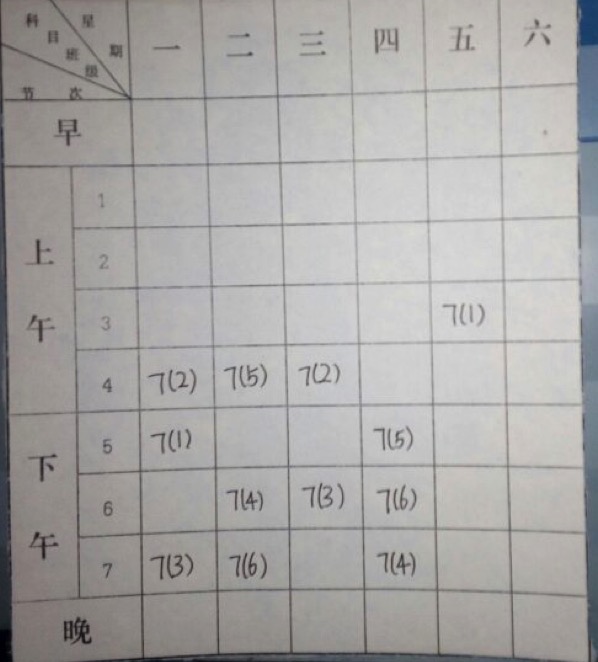 科目 班级 星期 节次 一 二 三 四 五 六
早
上午 1
2
3 7(1)
4 7(2) 7(5) 7(2)
下午 5 7(1) 7(5)
6 7(4) 7(3) 7(6)
7 7(3) 7(6) 7(4)
晚